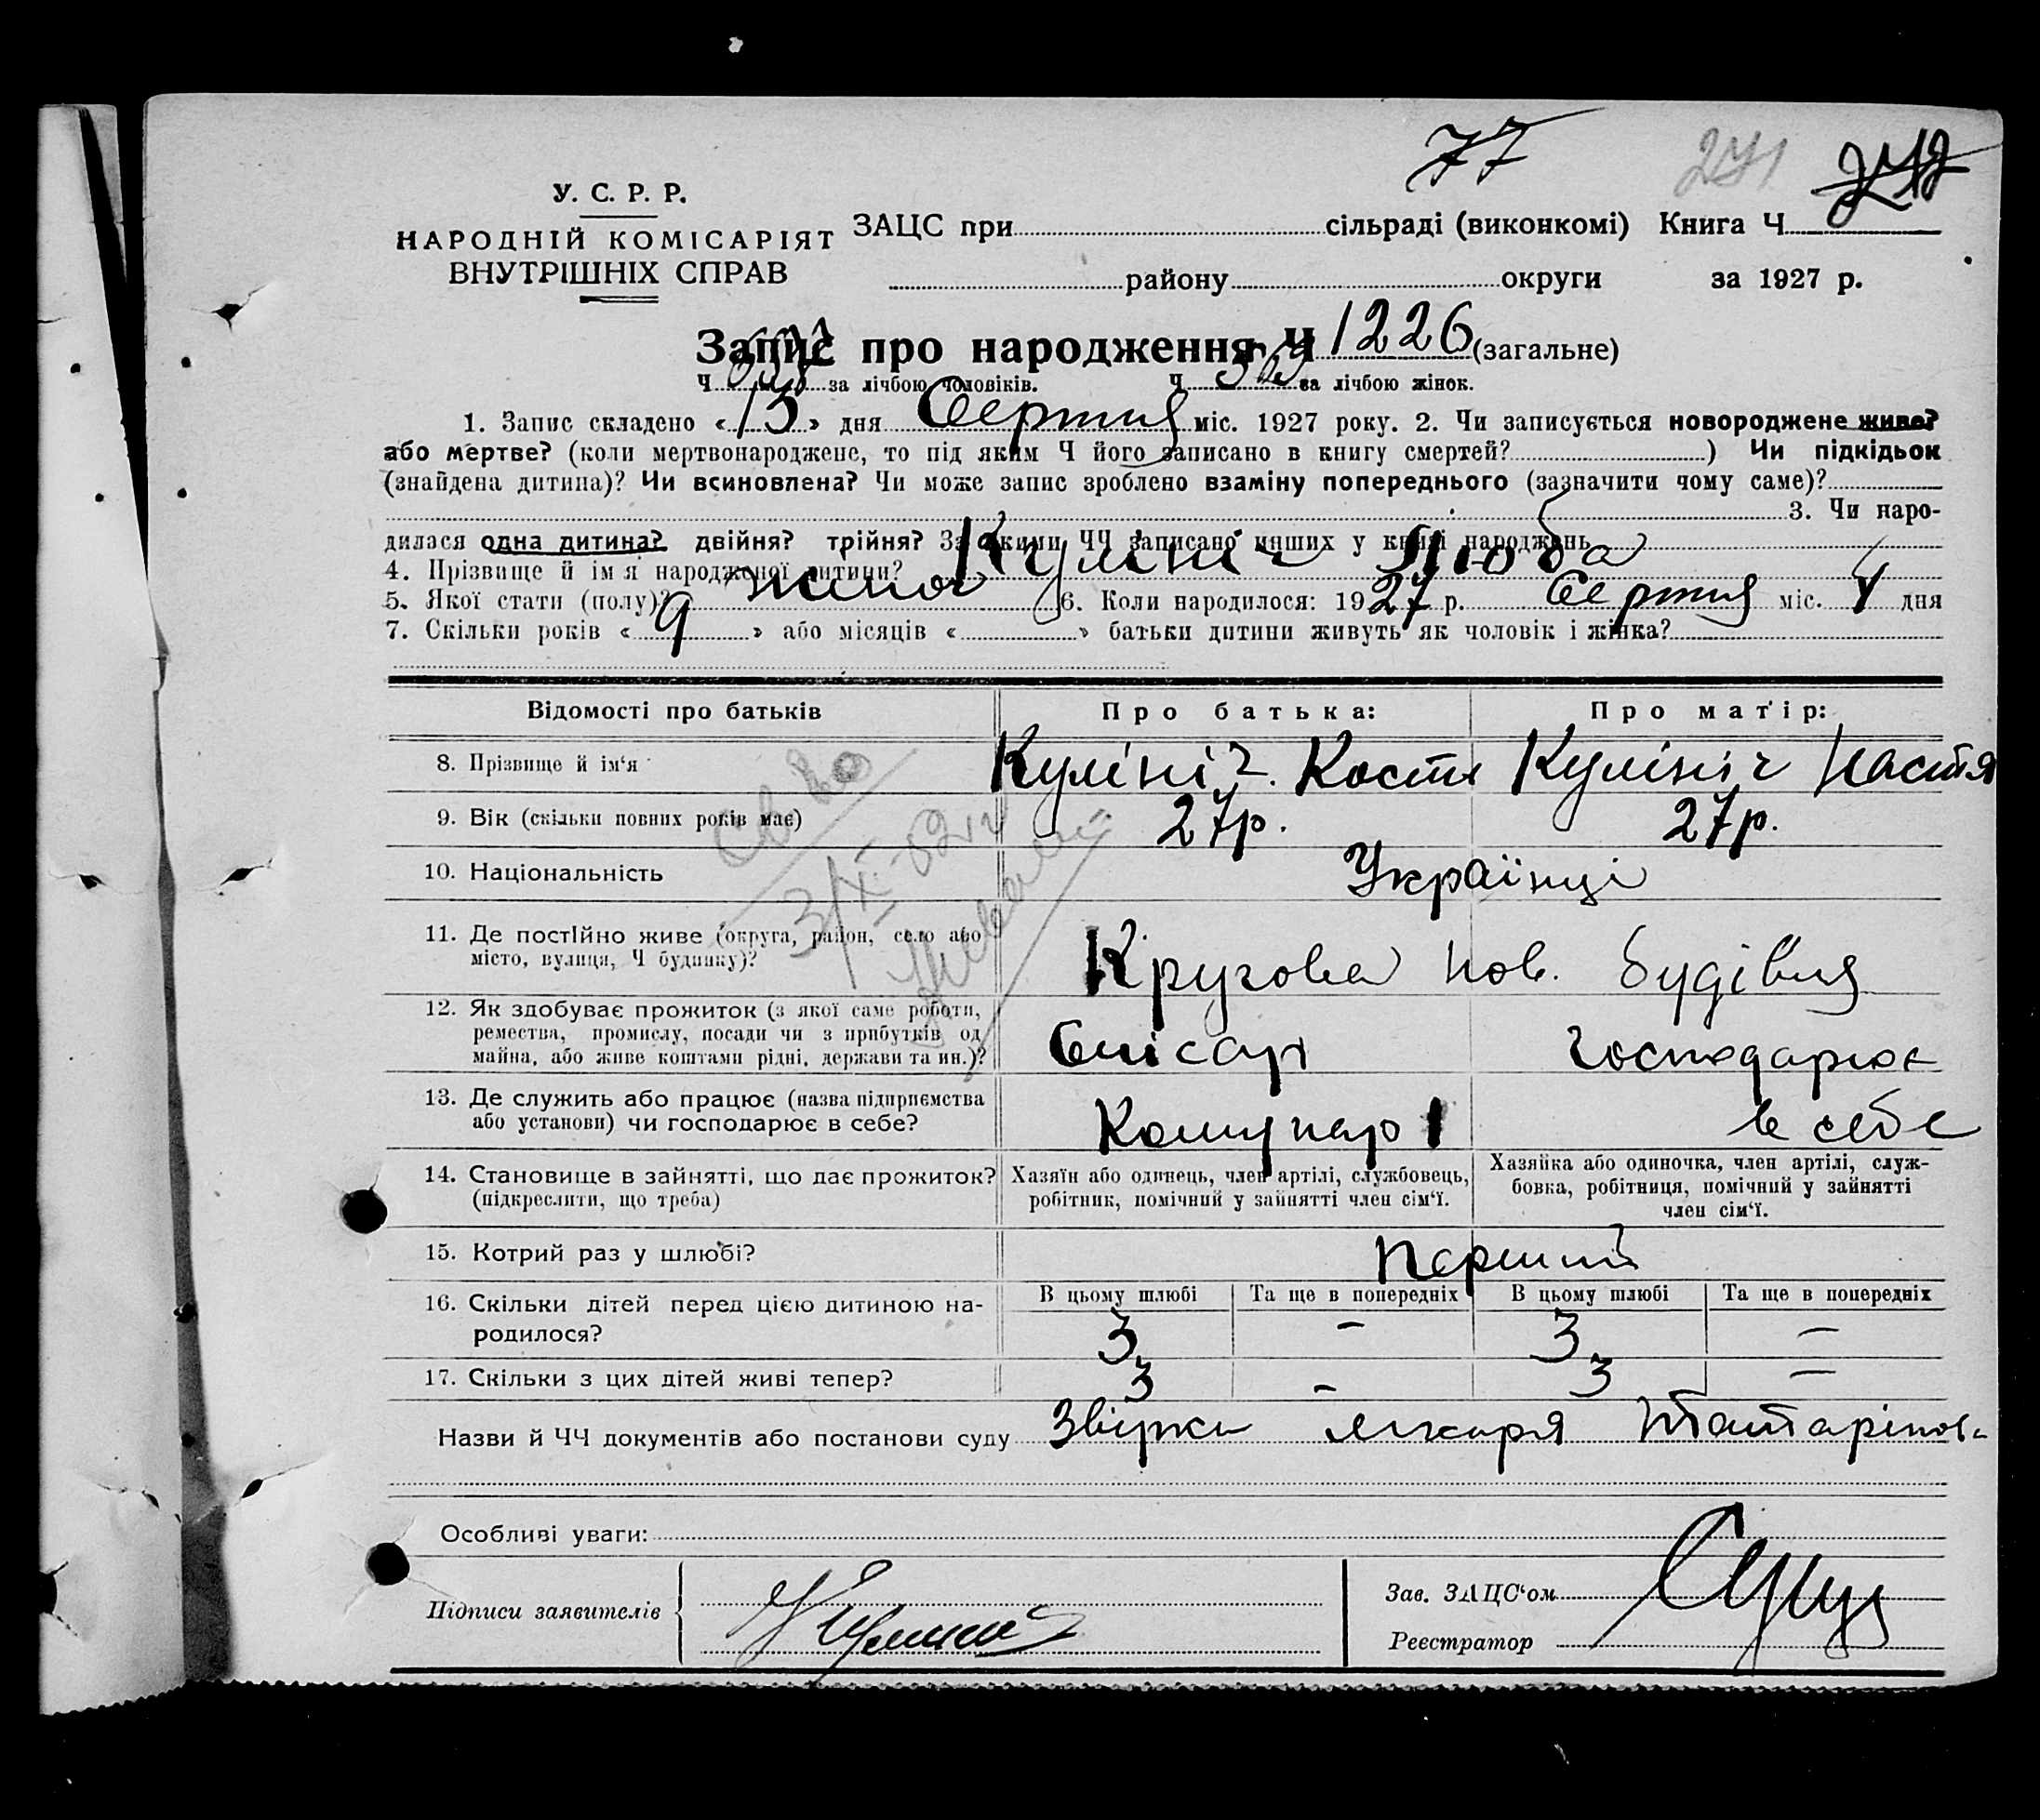 77 271 272
У. С. Р. Р.
НАРОДНІЙ КОМІСАРІЯТ
ВНУТРІШНІХ СПРАВ
ЗАЦС при сільраді (виконкомі) Книга Ч
району округи за 1927 р.
Запис про народження Ч 1226 (загальне)
Ч за лічбою чоловіків. Ч за лічбою жінок.
1. Запис складено « 13 » дня Серпня міс. 1927 року. 2. Чи записується новороджене живе?
або мертве? (коли мертвонароджене, то під яким Ч його записано в книгу смертей? ) Чи підкідьок
(знайдена дитина)? Чи всиновлена? Чи може запис зроблено взаміну попереднього (зазначити чому саме)?
3. Чи наро-
дилася одна дитина? двійня? трійня? За якими ЧЧ записано инших у книзі народжень
4. Прізвище й ім'я народженої дитини? Кулініч Люба
5. Якої стати (полу)? жіноч 6. Коли народилося: 1927 р. Серпня міс. 4 дня
7. Скільки років « 9 » або місяців « » батьки дитини живуть як чоловік і жінка?
Відомості про батьків Про батька: Про матір:
8. Прізвище й ім'я Кулініч Костя Кулініч Настя
9. Вік (скільки повних років має) 27р. 27р.
10. Національність Українці
11. Де постійно живе (округа, район, село або
місто, вулиця, Ч будинку)? Кругова нов. будівля
12. Як здобуває прожиток (з якої саме роботи,
ремества, промислу, посади чи з прибутків од
майна, або живе коштами рідні, держави та ин.)? Слісарь господарює
13. Де служить або працює (назва підприємства
або установи) чи господарює в себе? Комунар в себе
14. Становище в зайнятті, що дає прожиток?
(підкреслити, що треба)
Хазяїн або одинець, член артілі, службовець,
робітник, помічний у зайнятті член сім'ї.
Хазяйка або одиночка, член артілі, служ-
бовка, робітниця, помічний у зайнятті
член сім'ї.
15. Котрий раз у шлюбі? Перший
16. Скільки дітей перед цією дитиною на-
родилося?
В цьому шлюбі Та ще в попередніх В цьому шлюбі Та ще в попередніх
3 – 3 –
17. Скільки з цих дітей живі тепер? 3 – 3 –
Назви й ЧЧ документів або постанови суду лікаря
Особливі уваги:
Підписи заявителів
Зав. ЗАЦС'ом
Реєстратор